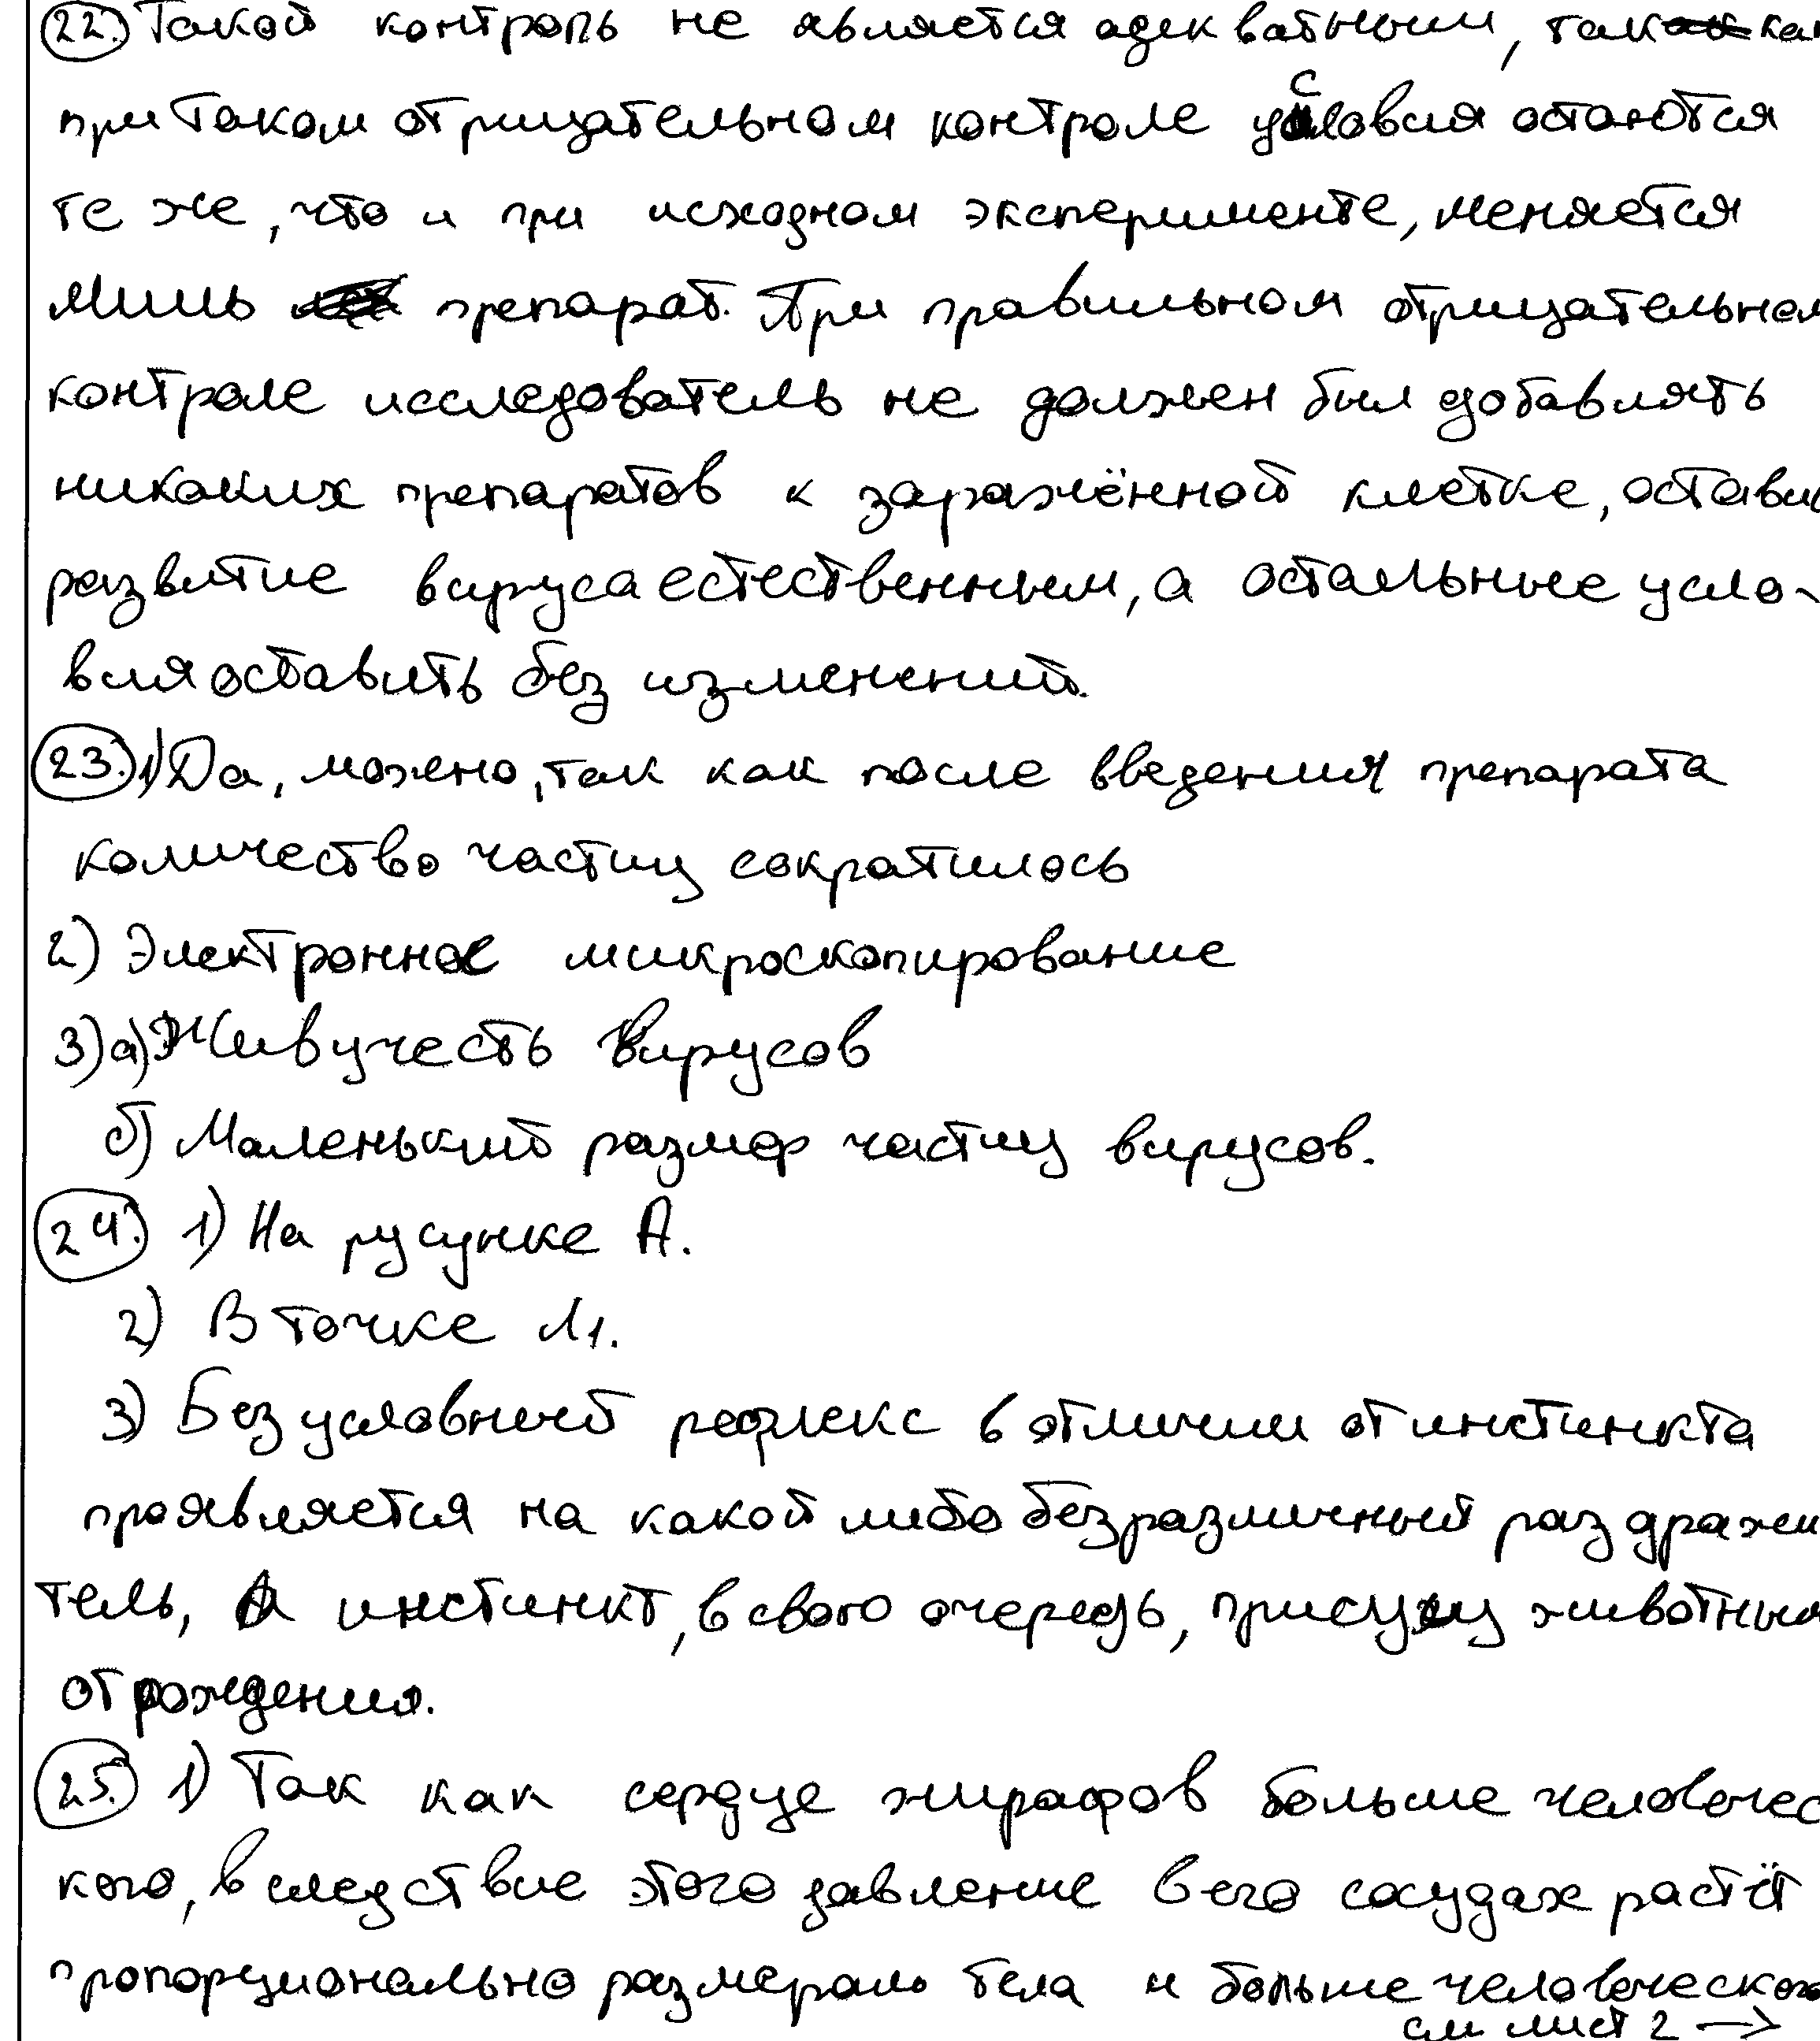 22. Такой контроль не является адекватным, так как
при таком отрицательном контроле условия остаются
те же, что и при исходном эксперименте, меняется
лишь препарат. При правильном отрицательном
контроле исследователь не должен был добавлять
никаких препаратов к заражённой клетке, оставив
развитие вируса естественным, а остальные усло-
вия оставить без изменений.
23. 1) Да, можно, так как после введения препарата
количество частиц сократилось
2) Электронное микроскопирование
3) а) Живучесть вирусов
б) Маленький размер частиц вирусов.
24. 1) На русунке А.
2) В точке Л1.
3) Безусловный рефлекс в отличии от инстинкта
проявляется на какой либо безразличный раздражи
тель, А инстинкт, в свою очередь, присущ животным
от рождения.
25. 1) Так как сердце жирафов больше человечес
кого, вследствие этого давление в его сосудах растёт
пропорционально размерам тела и больше человеческого
см лист 2 →